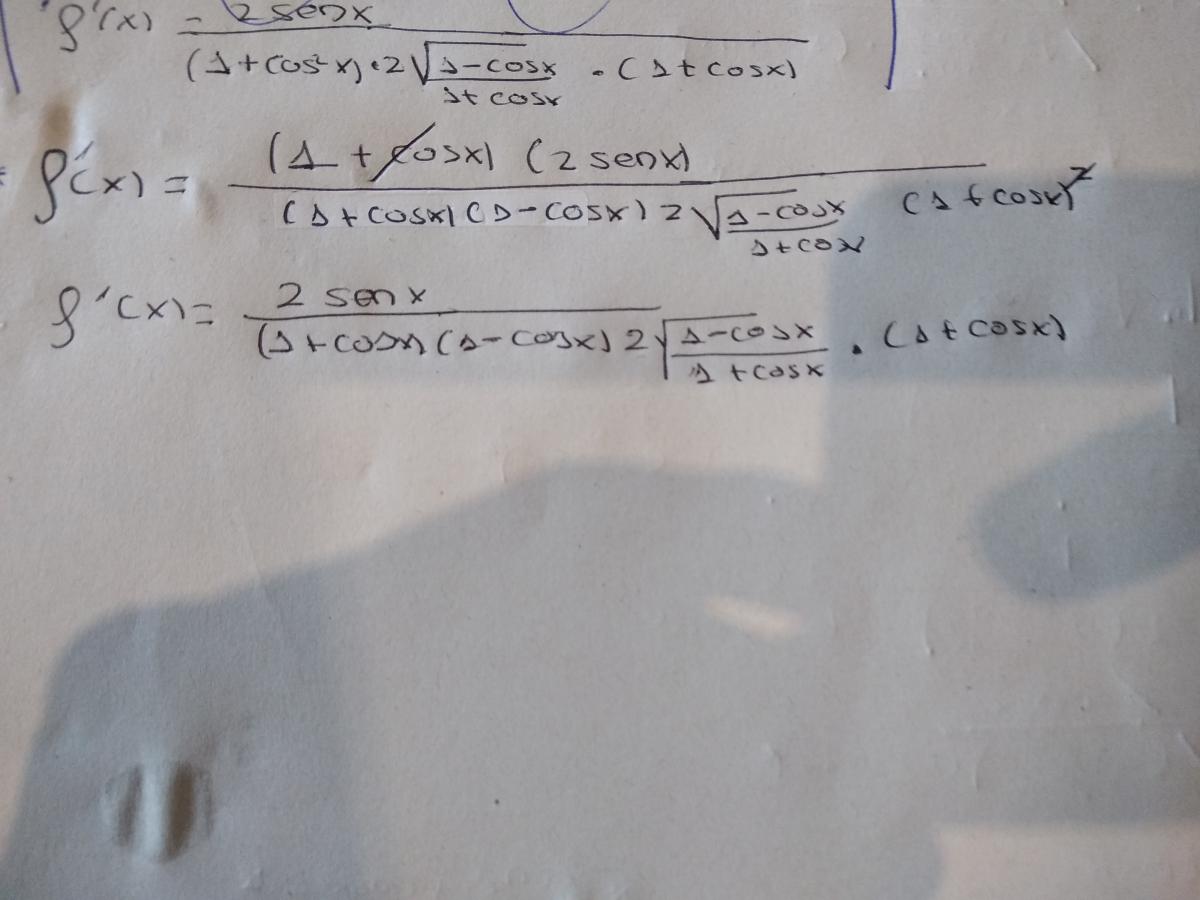 f'(x) = 2 senx / (1+cos²x)·2√((1-cosx)/(1+cosx)) · (1+cosx)
f'(x) = (1+cosx) (2 senx) / (1+cosx)(1-cosx) 2√((1-cosx)/(1+cox)) (1+cosx)²
f'(x) = 2 senx / (1+cosx)(1-cosx) 2√((1-cosx)/(1+cosx)) · (1+cosx)